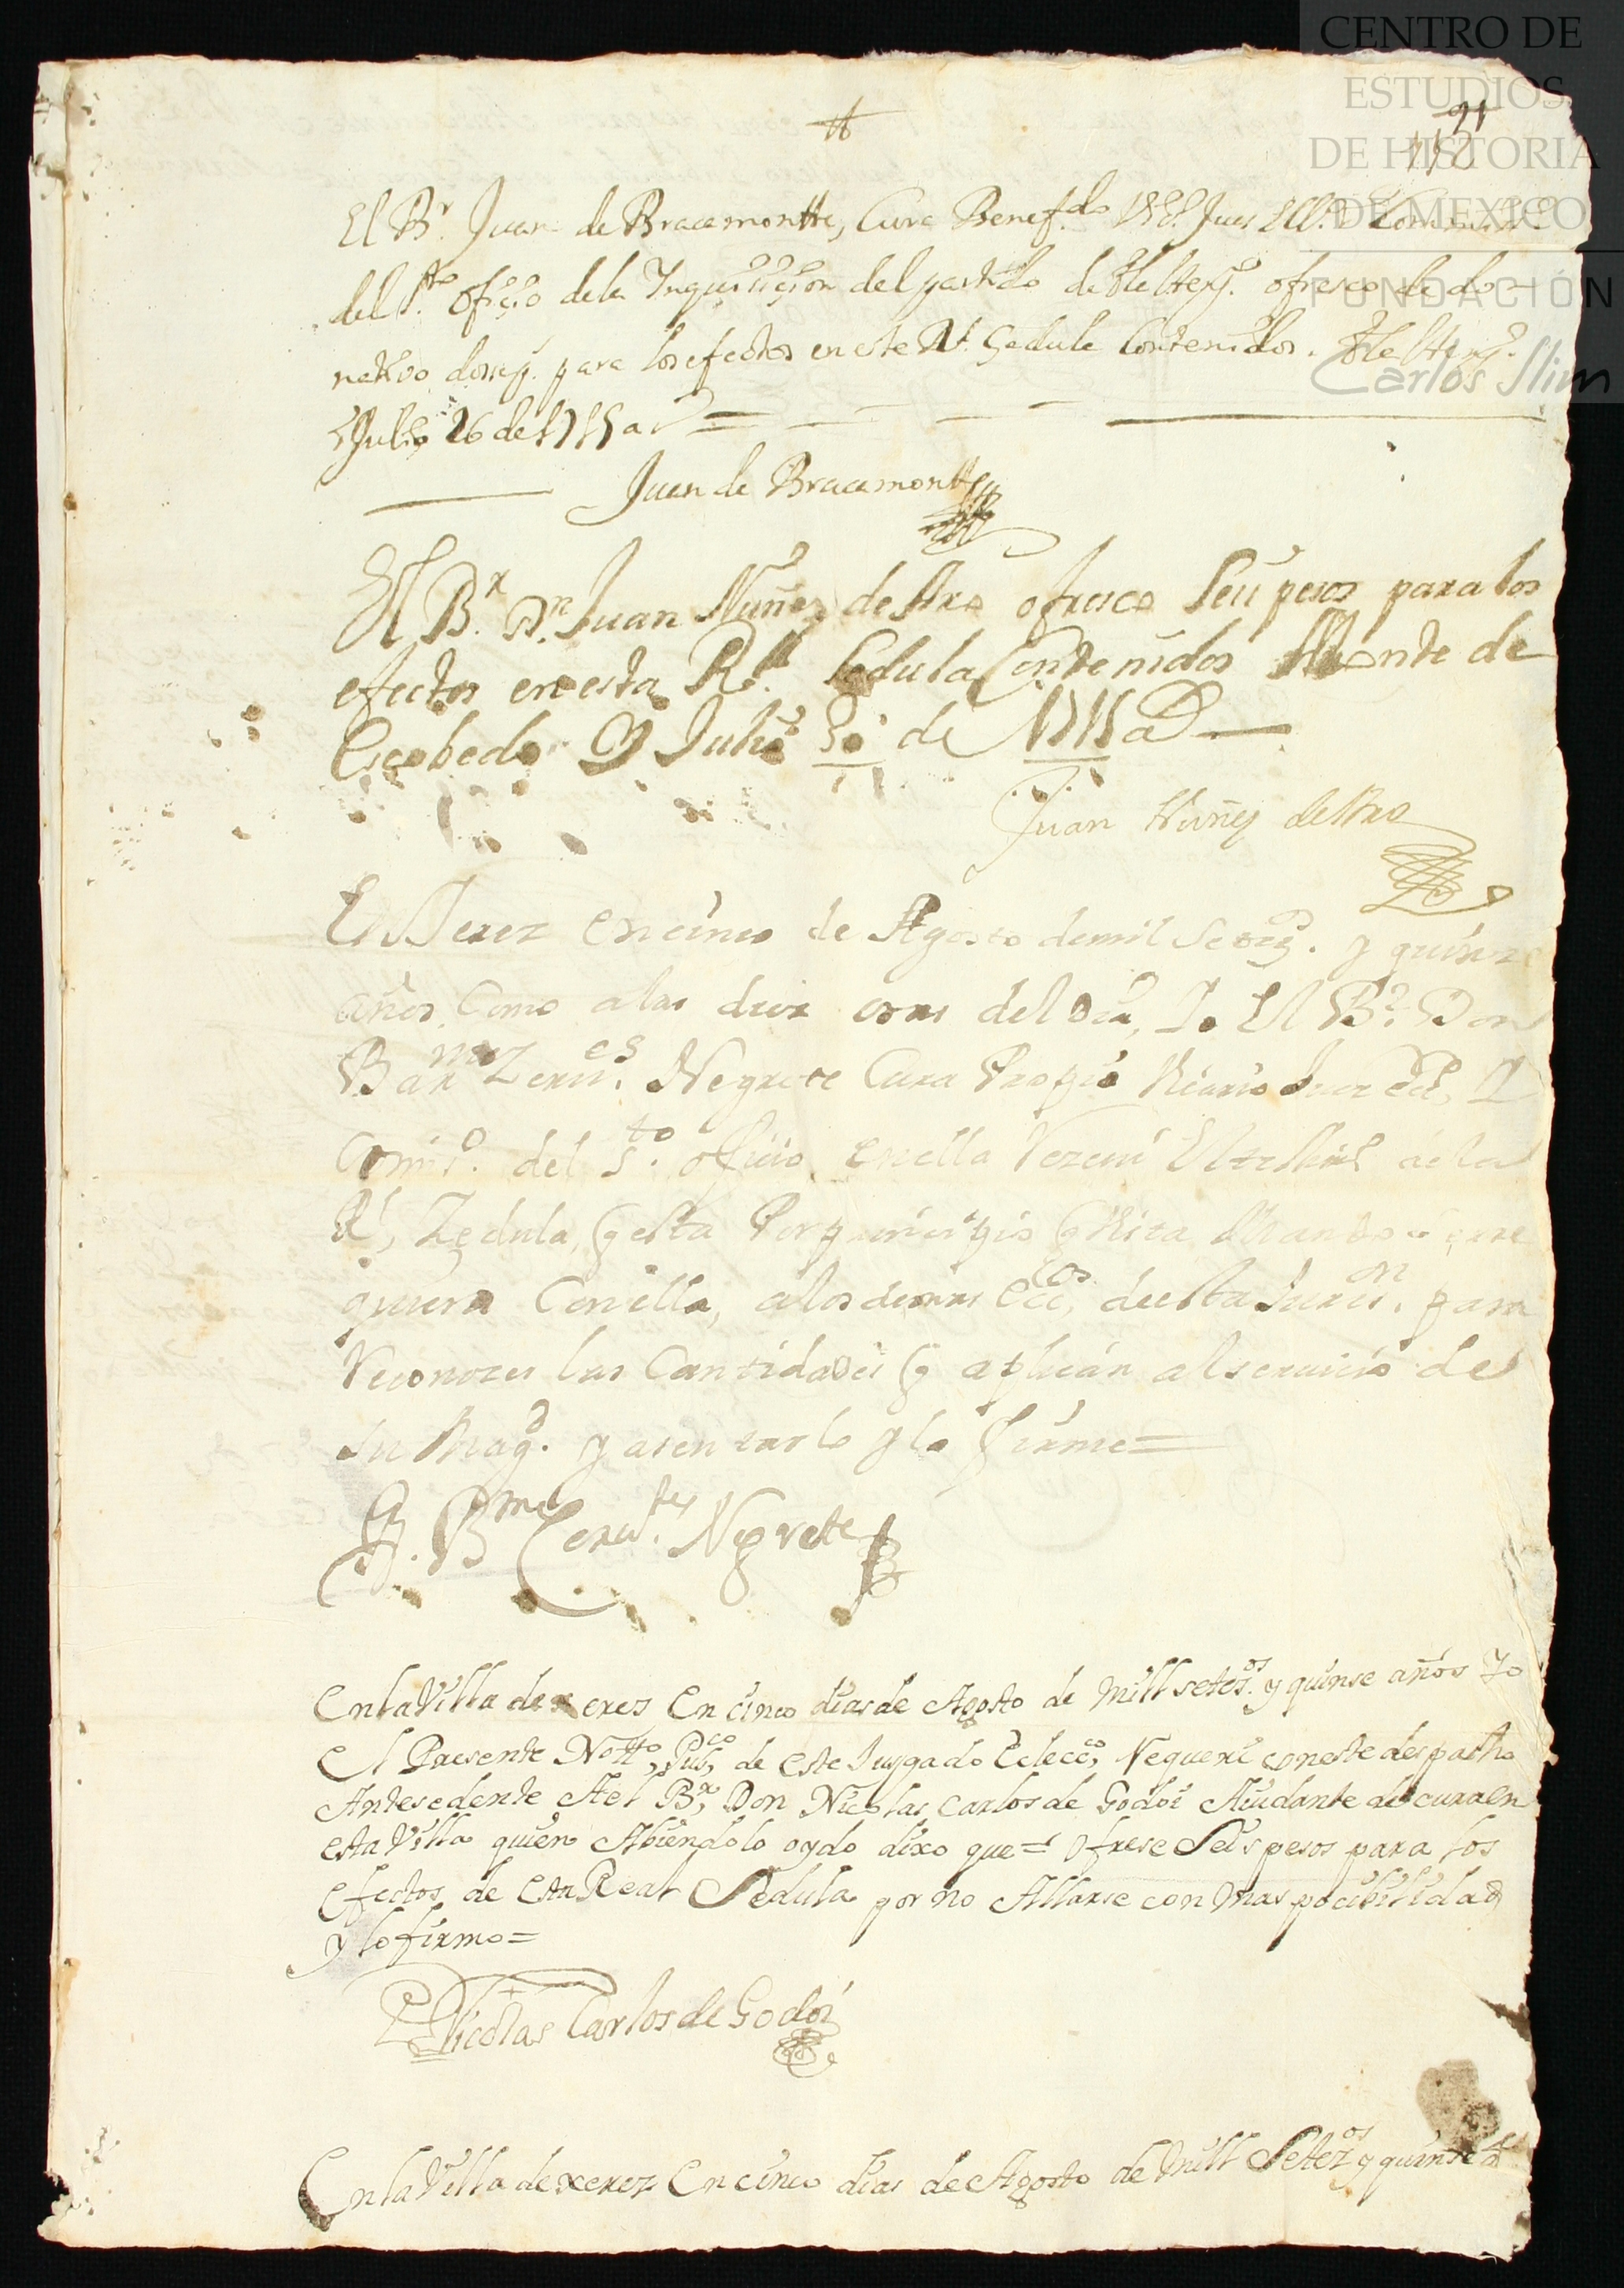 CENTRO DE
ESTUDIOS
DE HISTORIA
DE MEXICO
FUNDACIÓN
Carlos Slim
El Br. Juan de Bracamontte, Cura Benefdo. Jues
del Sto. ofiçio dela Inquisiçion del partido de ofresco de do-
nativo para los efectos en este Rl. Çedula Contenidos.
Julio 26 de 1715 as
Juan de Bracamontte
El Br. Dn. Juan Nuñez de Aro ofresco Seis pesos para los
efectos en esta Rl. Cedula Contenidos Monte de
Escobedo y Julio 30 de 1715 a
Juan Nuñez de Aro
En Jerez en cinco de Agosto de mil Setecs. y quinze
años, Como a las diez oras del Dia, Yo El Br. Don
Barme Zerves. Negrete Cura Propio Vicario Juez ecco, Y
Comiso. del Sto. oficio, en ella
Rl, Zedula, q esta Por prinsipio q Vista Mando se
quiera Con ella, a los demas Eccos, de esta Jurison. para
Reconozer las Cantidades q aplican al servicio de
Su Magd. y asentarlo y lo firme=
B. Bme Cervtes. Negrete
En la Villa de xeres En cinco dias de Agosto de Mill setesos. y quinse años Yo
El Presente Notto, Pubco, de este Jusgado Eclecco, Requeri con este despacho
Antesedente Ael Br, Don Nicolas Carlos de Godoi Aiudante de cura en
esta Villa quien Abiendolo oydo dixo que= ofrese Seis pesos para los
Efectos de Esta Real Sedula por no Allarse con mas pocibilidad
y lo firmo=
Br Nicolas Carlos de Godoi
En la Villa de xerez En cinco dias de Agosto de Mill Setezos y quinse